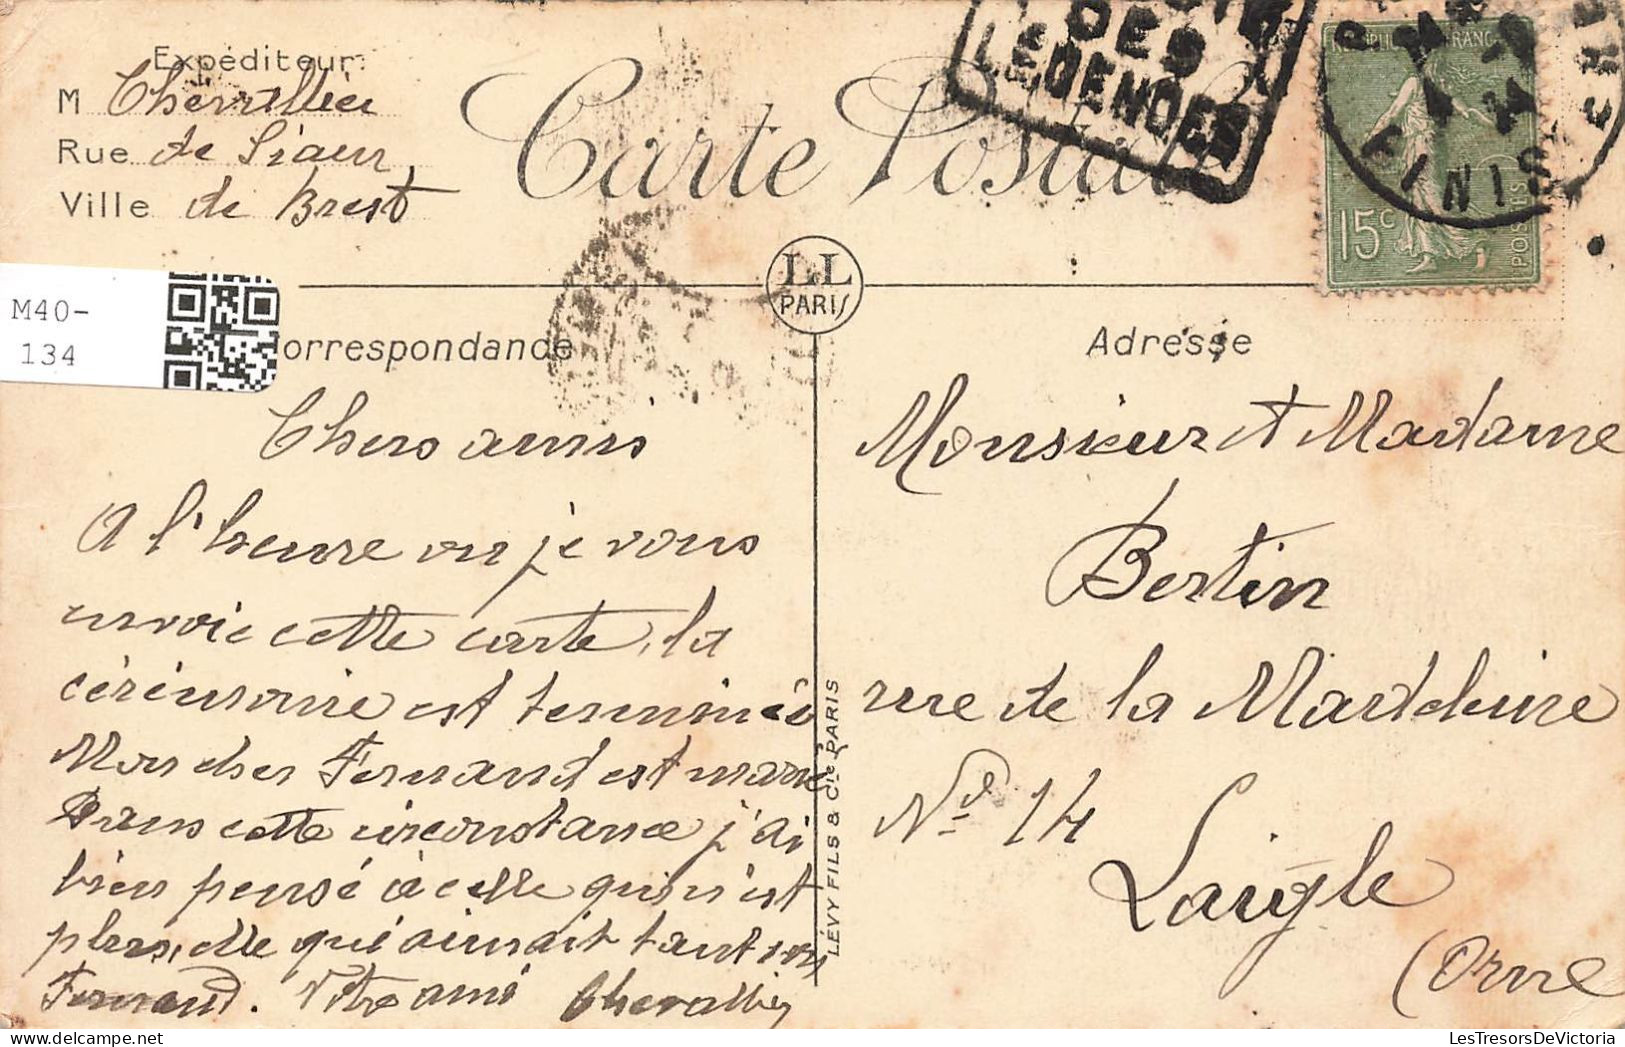 Expéditeur:
M Chevallier
Rue de Siam
Ville de Brest
Carte Postale
DES
LEGENDES
REPUBLIQUE FRANC
15c
POSTES
FINISTERE
M40-
134
LL
PARIS
orrespondance
Adresse
Chers amis
A l'heure ou je vous
envoie cette carte, la
cérémonie est terminée
Mon cher Fernand est marié
Dans cette circonstance j'ai
bien pensé à celle qui n'est
plus, elle qui aimait tant son
Fernand. Votre ami Chevallier
LÉVY FILS & Cie PARIS
Monsieur et Madame
Bertin
rue de la Madeleine
No 14
Laigle
(Orne
LesTresorsDeVictoria